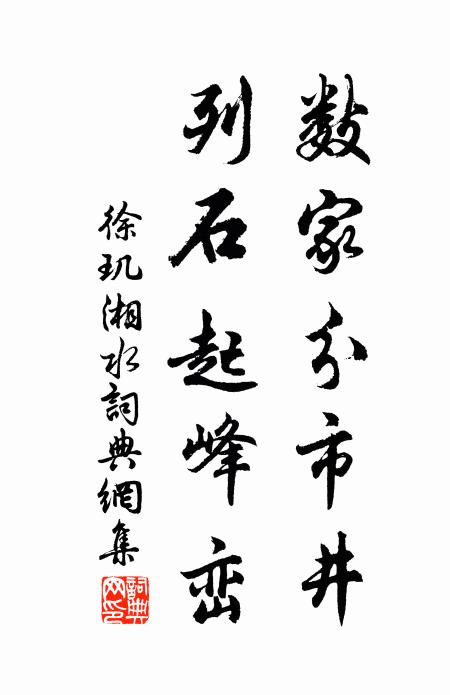 数家分市井
列石起峰峦
徐玑湘水詞典網集
詞典网印